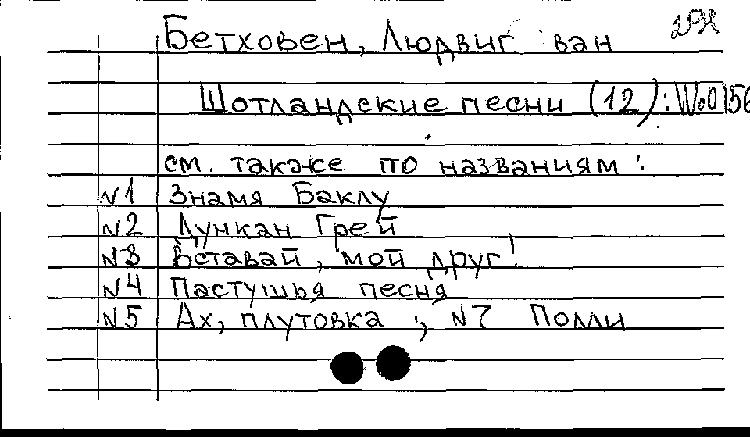 Бетховен, Людвиг ван
Шотландские песни (12): WoO 156
см. также по названиям:
N1 Знамя Баклу
N2 Дункан Грей
N3 Вставай, мой друг!
N4 Пастушья песня
N5 Ах, плутовка ; N7 Полли